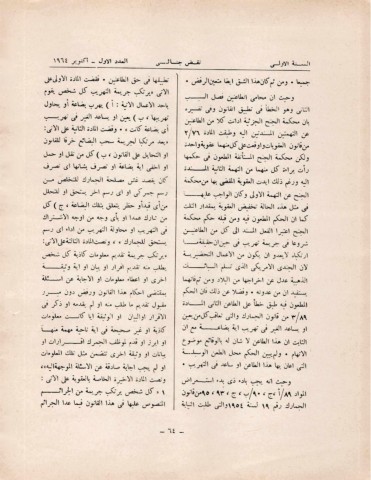 السنة الاولى
نقض جنائي
العدد الاول - اكتوبر ١٩٦٤
جميعا • ومن ثم كان هذا الشق ايضا متعين الرفض •
وحيث ان محامي الطاعنين فصل السبب
الثاني وهو الخطأ في تطبيق القانون وفي تفسيره
بان محكمة الجنح الجزئية ادانت كلا من الطاعنين
عن التهمتين المسندتين اليه وطبقت المادة ٢/٧٦
من قانون العقوبات واوقعت على كل منهما عقوبة واحدة
ولكن محكمة الجنح المستأنفة المطعون في حكمها
رأت براءة كل منهما من التهمة الثانية المسندة
اليه ورغم ذلك ايدت العقوبة المقضي بها من محكمة
الجنح عن التهمة الاولى وكان الواجب عليها
في مثل هذه الحالة تخفيض العقوبة بمقدار البت
في ان الحكم المطعون فيه ومن قبله حكم محكمة
الجنح اعتبرا الفعل المسند الى كل من الطاعنين
شروعا في جريمة تهريب في حين ان حقيقة ما
ارتكباه لايعدو ان يكون من الاعمال التحضيرية
لان الجندي الامريكي الذي تسلم السبائك
الذهبية عدل عن اخراجها من البلاد ومن ثم فانهما
يستفيدان من عدوله وفضلا عن ذلك فان الحكم
المطعون فيه طبق خطأ على الطاعن الثاني المادة
٣/٨٩ من قانون الجمارك الخاصة بمن يهرب
او يساعد الغير في تهريب اية بضاعة مع ان
الثابت ان هذا الطاعن لا شأن له بالوقائع موضوع
الاتهام • ولم يبين الحكم محل الطعن الوسيلة
التي اعان بها هذا الطاعن او ساعد في التهريب •
وحيث انه يجب باده ذي بدء استعراض
المواد ٨٩/أ و ج ، ٩٠/ب و ج ، ٩٣ ، ٩٥ من قانون
الجمارك رقم ١٩ لسنة ١٩٥٤ والتي طلبت النيابة
تطبيقها في حق الطاعنين • فقضت المادة الاولى على
الآتى (( يرتكب جريمة التهريب كل شخص يقوم
باحد الاعمال الآتية : أ ) يهرب بضاعة او يحاول
تهريبها ، ب ) يعين او يساعد الغير في تهريب
اى بضاعة كانت • ونصت المادة الثانية على الآتى :
(( يعد مرتكبا لجريمة سحب البضائع خرقا للقانون
او التحايل على القانون ( ب ) كل من نقل او حمل
او اخفى اية بضاعة او تصرف بشأنها اى تصرف
كان بقصد غش مصلحة الجمارك للتخلص من
رسم جمركي او اى رسم آخر يستحق عليها او التخلص
من اى قيد او حظر يتعلق بتلك البضاعة ( ج ) كل
من شارك عمدا او بأى وجه من اوجه الاشتراك
في التهريب او محاولة التهرب من اداء اى رسم
يستحق للجمارك ، ونصت المادة الثالثة على الآتى :
(( يرتكب جريمة تقديم معلومات كاذبة كل شخص
يطلب منه تقديم اقرار او بيان او اية وثيقة
اخرى او اعطاء معلومات او الاجابة عن اسئلة
بمقتضى احكام هذا القانون ورفض دون مبرر
معقول تقديم ما طلب منه او لم يقدمه او ذكر في
الاقرار او البيان او الوثيقة ايا كانت معلومات
كاذبة او غير صحيحة في اية ناحية مهمة منها
او ابرز او قدم لموظف الجمارك اقرارات او
بيانات او وثيقة اخرى تتضمن مثل تلك المعلومات
او لم يجب اجابة صادقة عن الاسئلة الموجهة اليه ))
ونصت المادة الاخيرة الخاصة بالعقوبة على الآتى :
(( ١ • كل شخص يرتكب جريمة من الجرائم
المنصوص عليها في هذا القانون فيما عدا الجرائم
- ٦٤ -